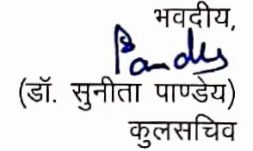 भवदीय,
Pandey
(डॉ. सुनीता पाण्डेय)
कुलसचिव